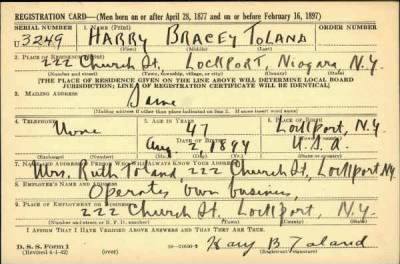 REGISTRATION CARD—(Men born on or after April 28, 1877 and on or before February 16, 1897)
SERIAL NUMBER 1. NAME (Print) ORDER NUMBER
U3249 HARRY BRACEY TOLAND
(First) (Middle) (Last)
2. PLACE OF RESIDENCE (Print)
222 Church St. LOCKPORT, Niagara, N.Y.
(Number and street) (Town, township, village, or city) (County) (State)
[THE PLACE OF RESIDENCE GIVEN ON THE LINE ABOVE WILL DETERMINE LOCAL BOARD
JURISDICTION; LINE 2 OF REGISTRATION CERTIFICATE WILL BE IDENTICAL]
3. MAILING ADDRESS
Same
[Mailing address if other than place indicated on line 2. If same insert word same]
4. TELEPHONE 5. AGE IN YEARS 6. PLACE OF BIRTH
None 47 Lockport, N.Y.
DATE OF BIRTH (Town or county)
Aug. 2, 1894 U.S.A.
(Exchange) (Number) (Mo.) (Day) (Yr.) (State or country)
7. NAME AND ADDRESS OF PERSON WHO WILL ALWAYS KNOW YOUR ADDRESS
Mrs. Ruth Toland, 222 Church St., Lockport, N.Y.
8. EMPLOYER'S NAME AND ADDRESS
Operates own business,
9. PLACE OF EMPLOYMENT OR BUSINESS
222 Church St. Lockport, N.Y.
(Number and street or R. F. D. number) (Town) (County) (State)
I AFFIRM THAT I HAVE VERIFIED ABOVE ANSWERS AND THAT THEY ARE TRUE.
D. S. S. Form 1
(Revised 4-1-42) (over) Harry B Toland
(Registrant's signature)